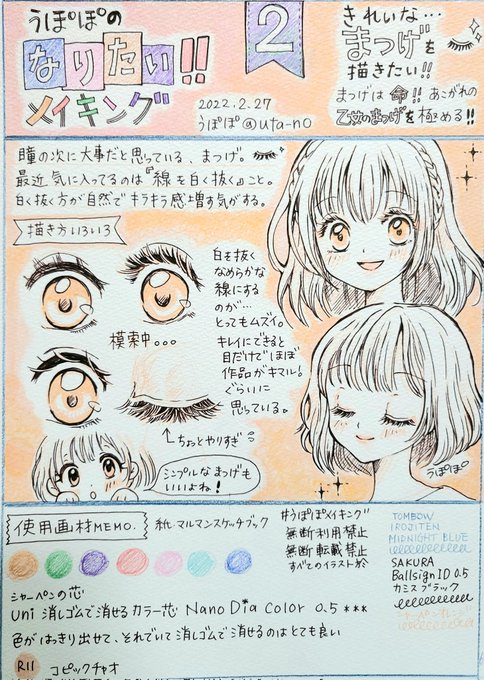 うぽぽの
なりたい!!
メイキング
2
2022.2.27
うぽぽ@uta-n0
きれいな…
まつげを
描きたい!!
まつげは 命!! あこがれの
乙女のまつげを極める!!
瞳の次に大事だと思っている、まつげ。
最近気に入ってるのは『線を白く抜く』こと。
白く抜く方が自然でキラキラ感増す気がする。
描き方いろいろ
白を抜く
なめらかな
線にする
のが…
とってもムズイ。
キレイにできると
目だけでほぼ
作品がキマル!
ぐらいに
思っている。
模索中。。。
ちょっとやりすぎ
シンプルなまつげも
いいよね!
うぽぽ
使用画材MEMO.
紙 マルマンスケッチブック
シャーペンの芯
uni 消しゴムで消せるカラー芯 Nano Dia Color 0.5 ***
色がはっきり出せて、それでいて消しゴムで消せるのはとても良い
R11 コピックチャオ
#うぽぽメイキング
無断利用禁止
無断転載禁止
すべてのイラスト於
TOMBOW
IROJITEN
MIDNIGHT BLUE
SAKURA
Ballsign iD 0.5
カシスブラック